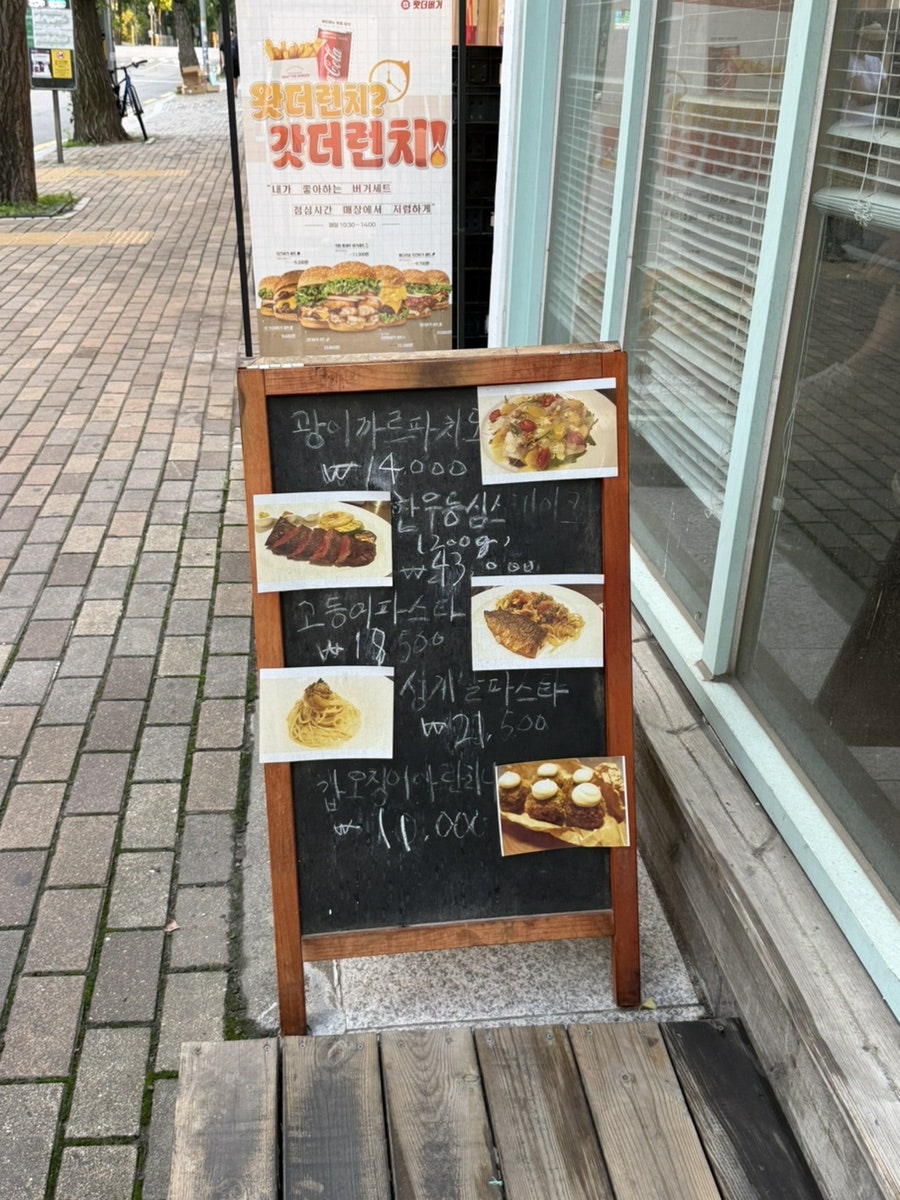 왓더버거
Coca-Cola
왓더런치?
갓더런치!
"내가 좋아하는 버거세트
점심시간 매장에서 저렴하게"
매일 10:30~14:00
광어까르파치오
₩14,000
한우등심스테이크
1200g,
₩43,000
고등어파스타
₩18,500
성게알파스타
₩21,500
갑오징어아란치니
₩11,000